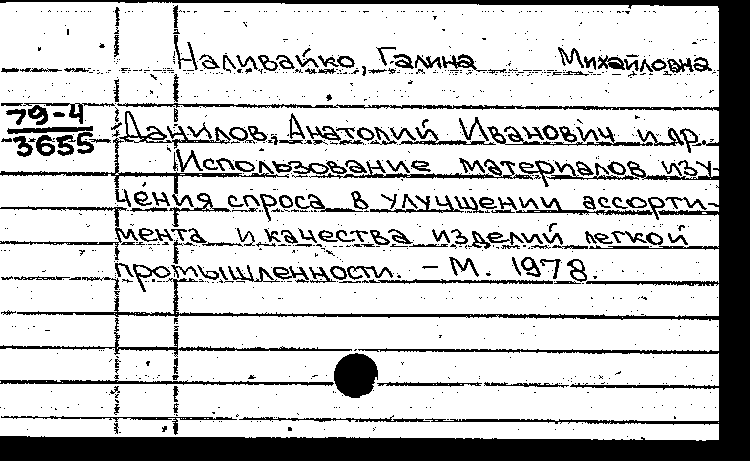 Наливайко, Галина Михайловна
79-4
3655
Данилов, Анатолий Иванович и др.
Использование материалов изу-
чения спроса в улучшении ассорти-
мента и качества изделий легкой
промышленности. - М. 1978.